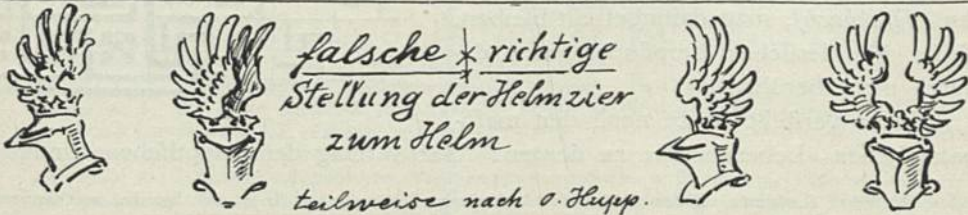 falsche * richtige
Stellung der Helmzier
zum Helm
teilweise nach O. Hupp.